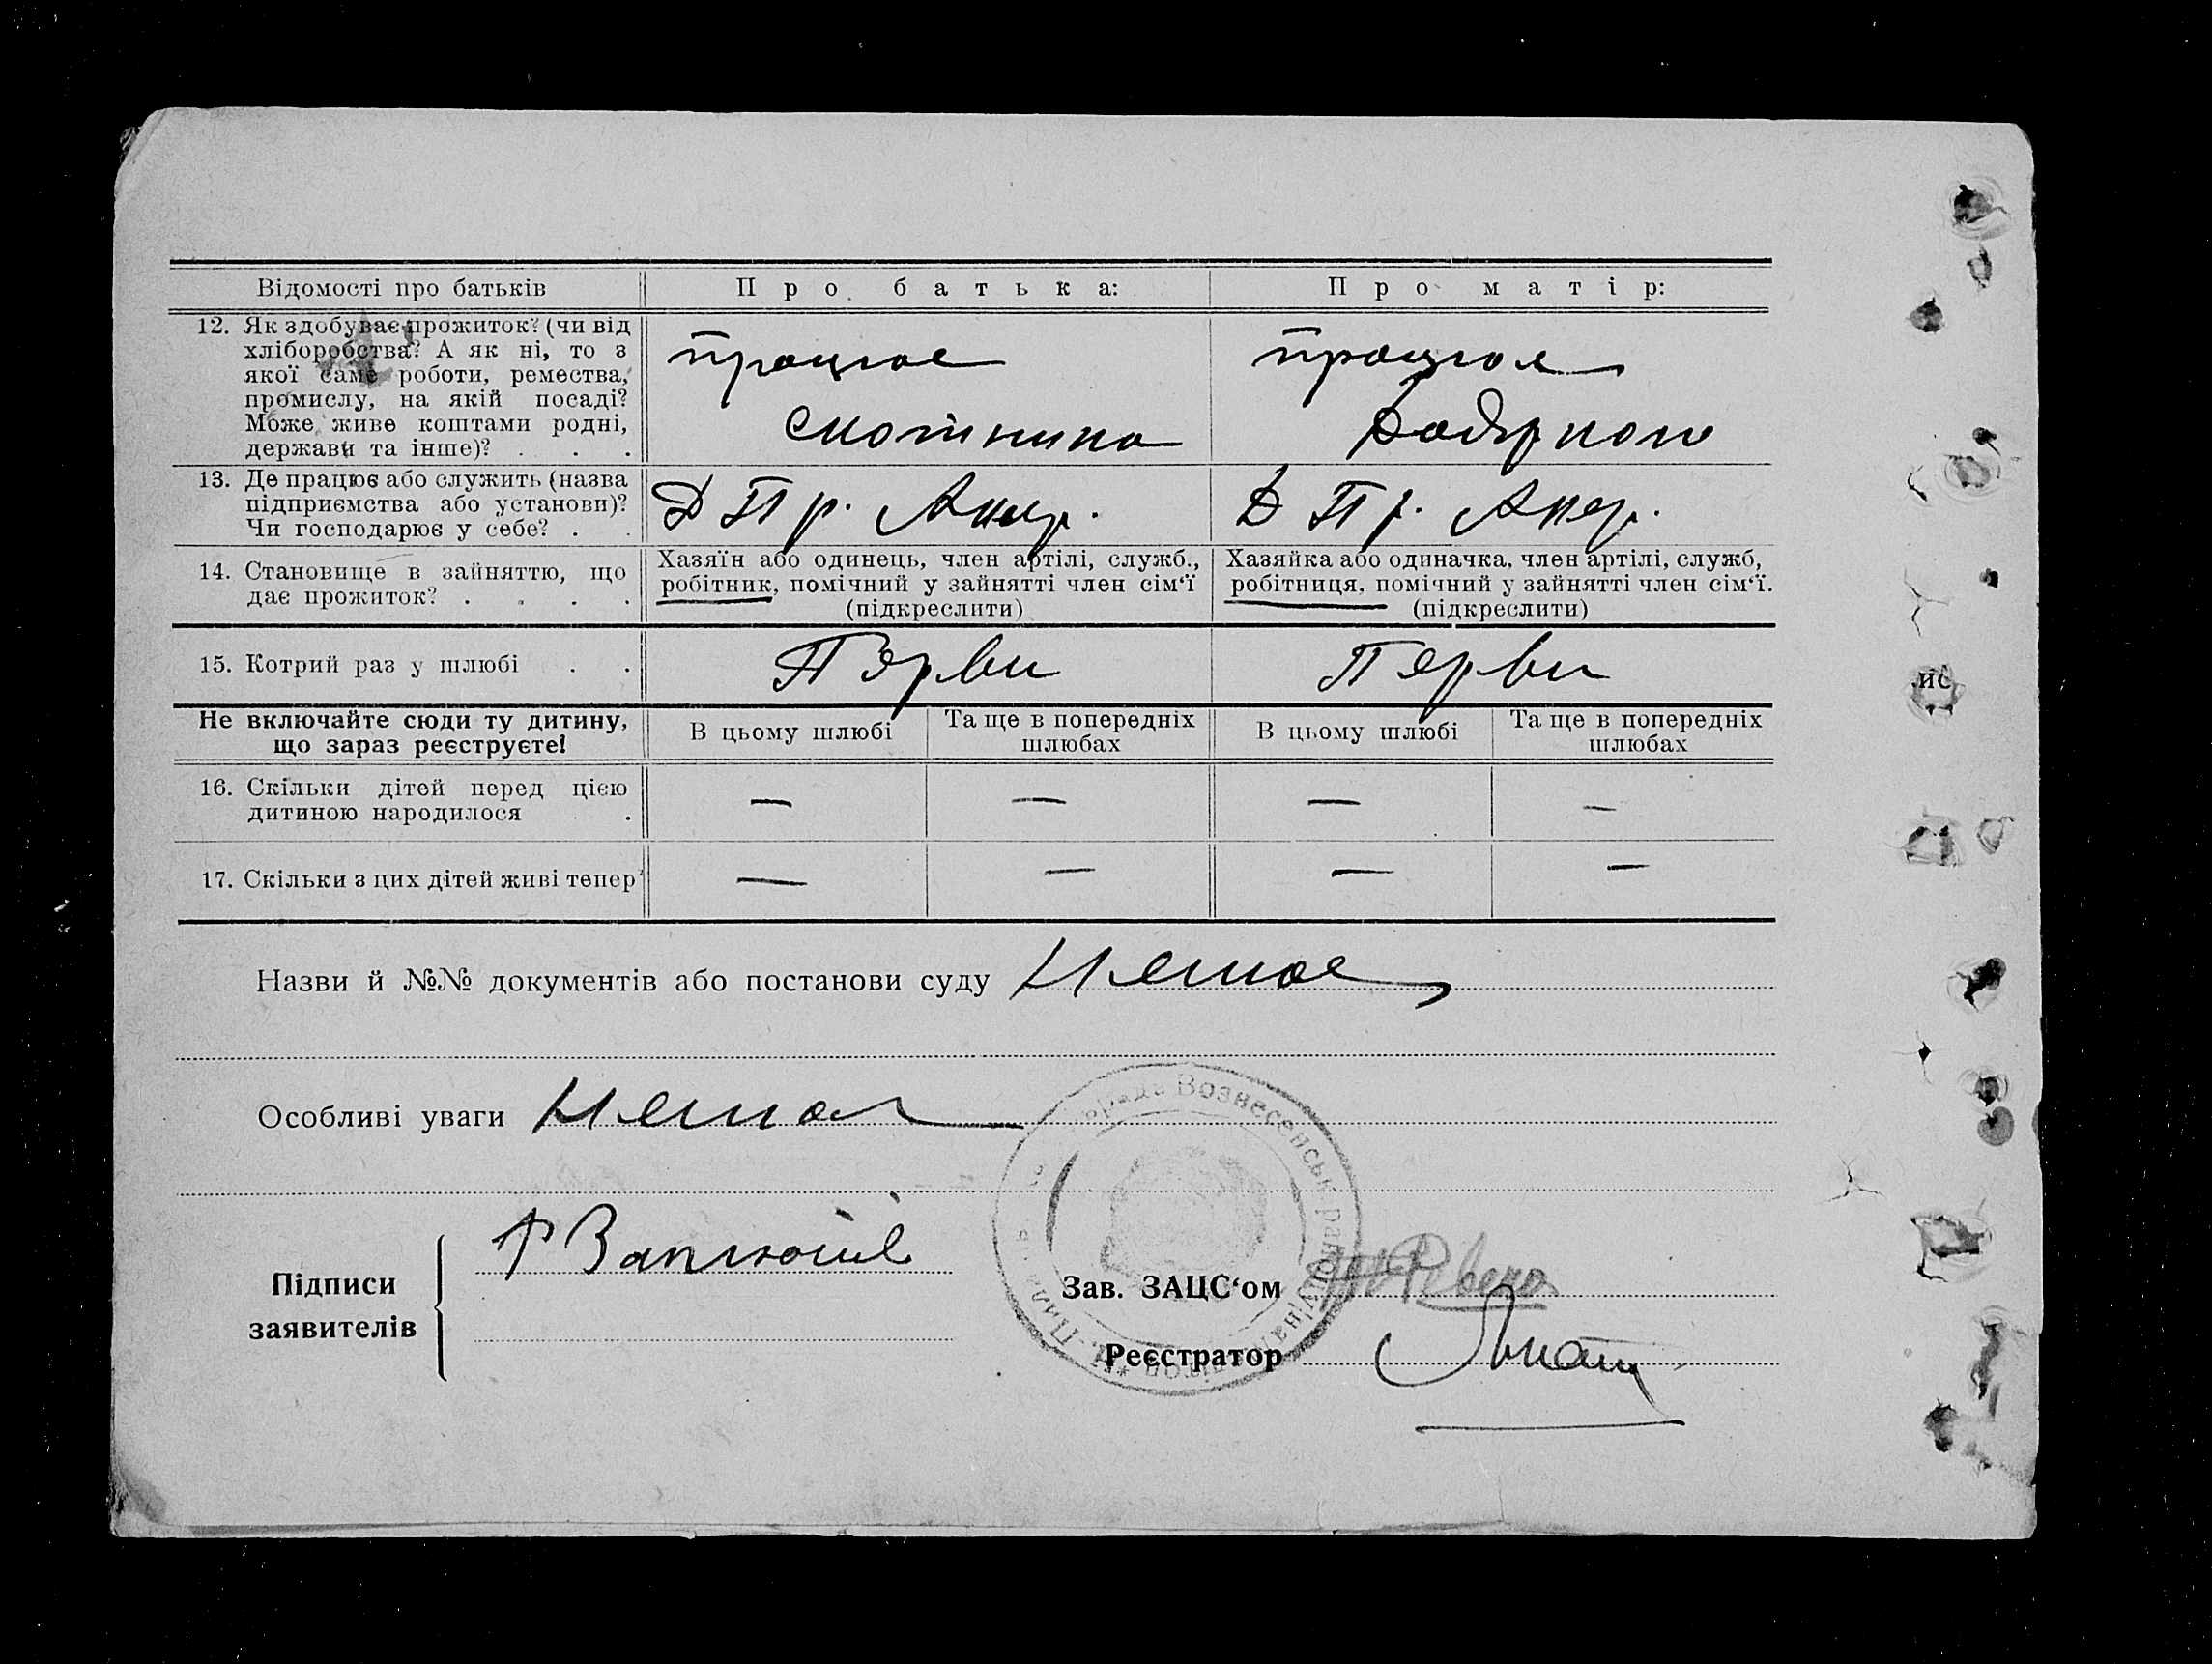 Відомості про батьків
Про батька:
Про матір:
12. Як здобуває прожиток? (чи від
хліборобства? А як ні, то з
якої саме роботи, ремества,
промислу, на якій посаді?
Може живе коштами родні,
держави та інше)? . . .
працює
скотнико
працює
13. Де працює або служить (назва
підприємства або установи)?
Чи господарює у себе? . .
Д Пр.
Д Пр.
14. Становище в зайняттю, що
дає прожиток? . . . .
Хазяїн або одинець, член артілі, служб.,
робітник, помічний у зайнятті член сім‘ї
(підкреслити)
Хазяйка або одиначка, член артілі, служб,
робітниця, помічний у зайнятті член сім‘ї.
(підкреслити)
15. Котрий раз у шлюбі . .
Перви
Перви
Не включайте сюди ту дитину,
що зараз реєструєте!
В цьому шлюбі
Та ще в попередніх
шлюбах
В цьому шлюбі
Та ще в попередніх
шлюбах
16. Скільки дітей перед цією
дитиною народилося .
— — — —
17. Скільки з цих дітей живі тепер
— — — —
Назви й №№ документів або постанови суду Немає
Особливі уваги Немає
рада Вознесенськ
Підписи
заявителів
Зав. ЗАЦС‘ом
Реєстратор
ис